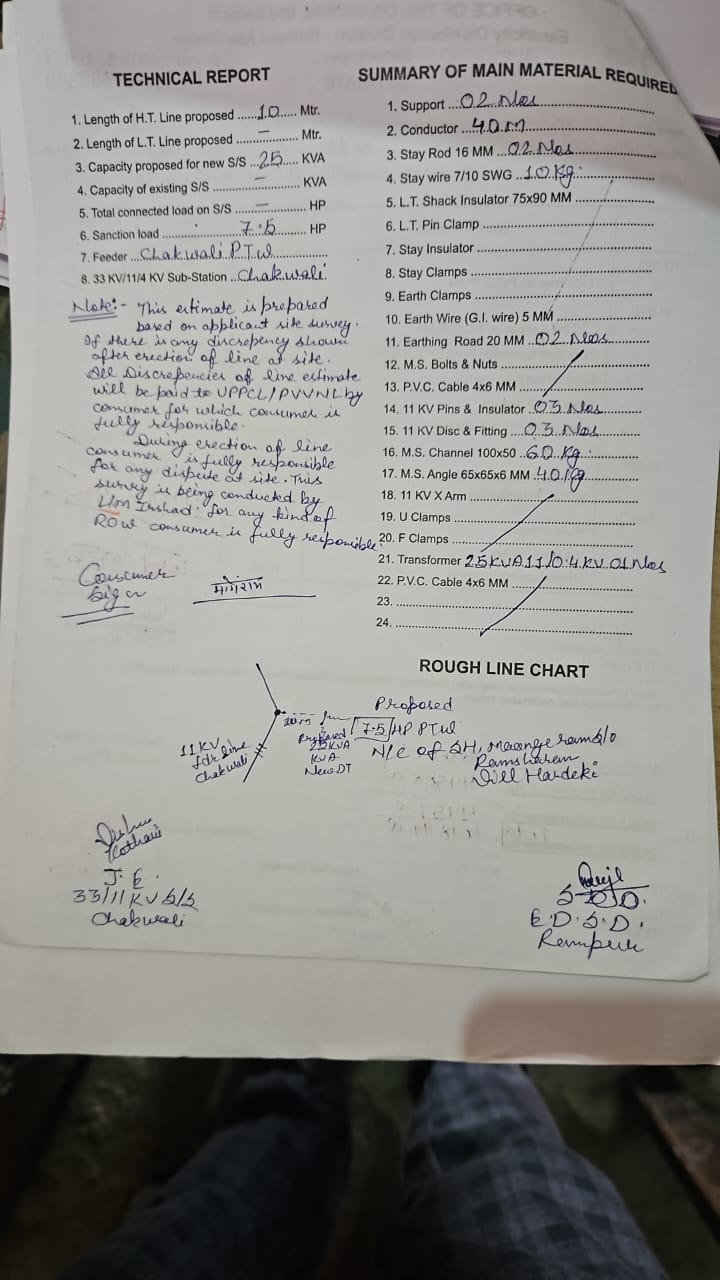 TECHNICAL REPORT
1. Length of H.T. Line proposed ......10...... Mtr.
2. Length of L.T. Line proposed ......–...... Mtr.
3. Capacity proposed for new S/S ...25.... KVA
4. Capacity of existing S/S ......–...... KVA
5. Total connected load on S/S ......–...... HP
6. Sanction load ......7.5...... HP
7. Feeder ...Chakwali PTW......
8. 33 KV/11/4 KV Sub-Station ..Chakwali
Note:- This estimate is prepared
based on applicant site survey.
If there is any discrepency shown
after erection of line at site.
All Discrepencies of line estimate
will be paid to UPPCL/PVVNL by
consumer for which consumer is
fully responsible.
During erection of line
consumer is fully responsible
for any dispute at site. This
survey is being conducted by
Irshad. for any kind of
ROW consumer is fully responsible
Consumer
Sign
मांगेराम
SUMMARY OF MAIN MATERIAL REQUIRED
1. Support ...02 Nos......
2. Conductor ...40 M......
3. Stay Rod 16 MM ...02 Nos......
4. Stay wire 7/10 SWG ..10 Kg......
5. L.T. Shack Insulator 75x90 MM ......
6. L.T. Pin Clamp ......
7. Stay Insulator ......
8. Stay Clamps ......
9. Earth Clamps ......
10. Earth Wire (G.I. wire) 5 MM ......
11. Earthing Road 20 MM ..02 Nos......
12. M.S. Bolts & Nuts ......
13. P.V.C. Cable 4x6 MM ......
14. 11 KV Pins & Insulator ..03 Nos......
15. 11 KV Disc & Fitting ....03 Nos......
16. M.S. Channel 100x50 ..60 Kg......
17. M.S. Angle 65x65x6 MM .40 Kg......
18. 11 KV X Arm ......
19. U Clamps ......
20. F Clamps ......
21. Transformer 25 KVA 11/0.4 KV 01 Nos
22. P.V.C. Cable 4x6 MM ......
23. ......
24. ......
ROUGH LINE CHART
Proposed
7.5 HP PTW
N/c of SH, Maange ram S/o
Ramsharan
Vill Hardeki
Proposed
25 KVA
KVA
New DT
11 KV
fdr line
Chakwali
J.E.
33/11 KV S/S
Chakwali
S.D.O.
E.D.S.D.
Rampur